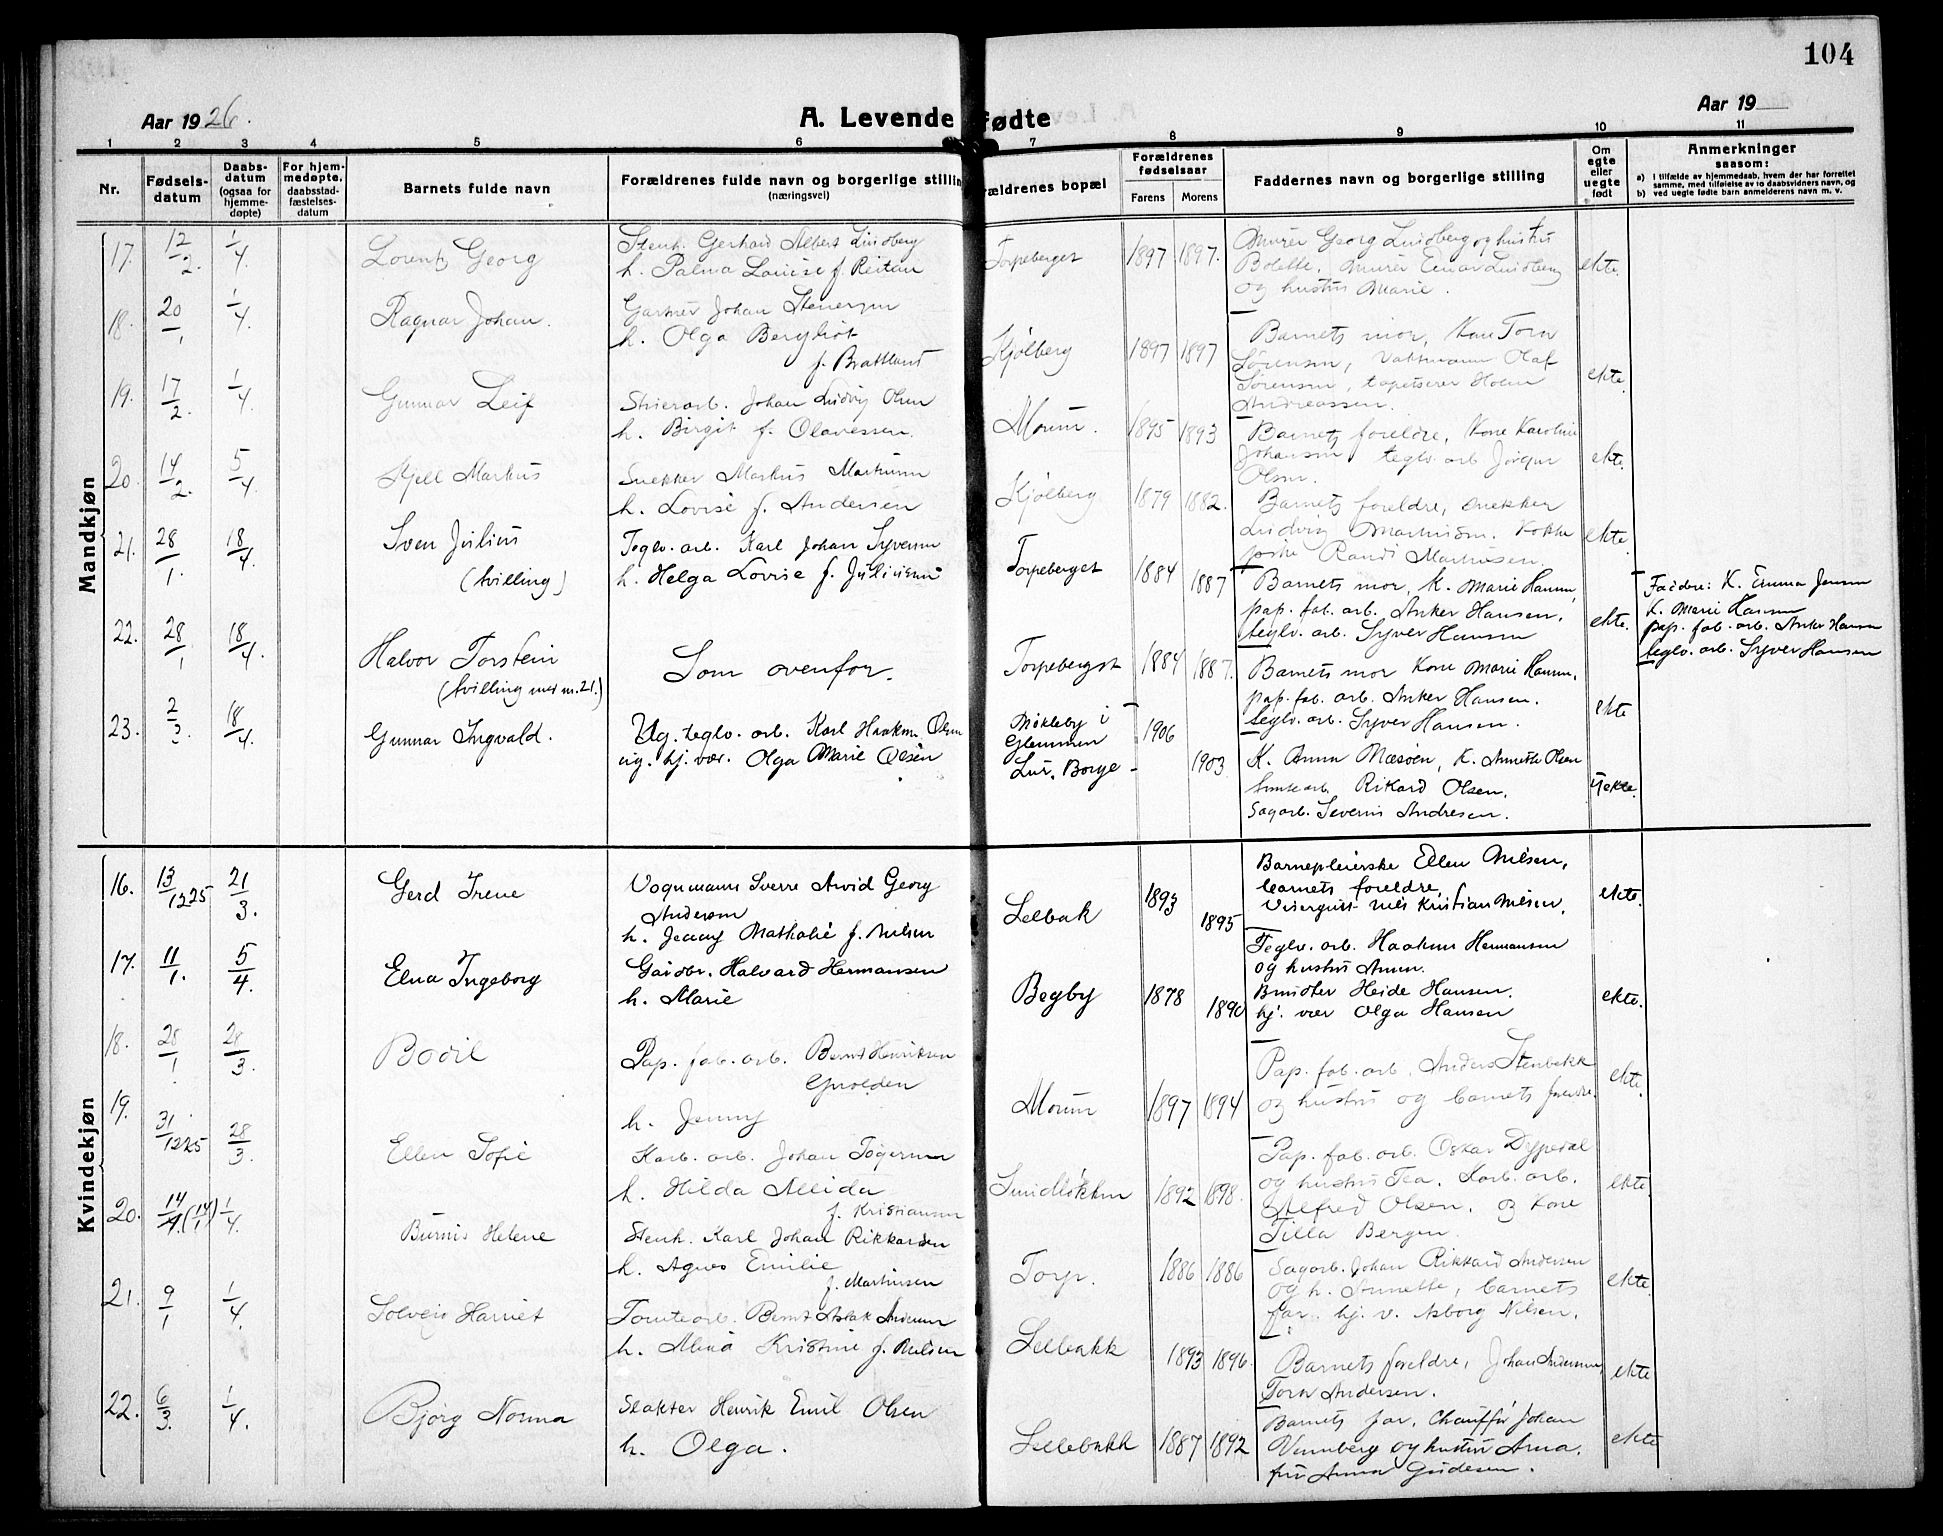 104
Aar 1926.
A. Levende fødte
Aar 19
1 2 3 4 5 6 7 8 9 10 11
Nr.
Fødsels-
datum
Daabs-
datum
(ogsaa for
hjemme-
døpte)
For hjem-
medøpte.
daabsstad-
fæstelses-
datum
Barnets fulde navn
Forældrenes fulde navn og borgerlige stilling
(næringsvei)
ældrenes bopæl
Forældrenes
fødselsaar
Farens Morens
Faddernes navn og borgerlige stilling
Om
egte
eller
uegte
født
Anmerkninger
saasom:
a) i tilfælde av hjemmedaab, hvem der har forrettet
samme, med tilføielse av to daabsvidners navn, og
b) ved uegte fødte barn anmelderens navn m. v.
Mandkjøn
17. 12/2. 1/4 Lorentz Georg
Stenh. Gerhard Albert Lindberg
h. Palma Louise f. Reitan
Torpeberget 1897 1897.
Murer Georg Lindberg og hustru
Bolette, murer Einar Lindberg
og hustru Marie.
ekte.
18. 20/1 1/4 Ragnar Johan.
Gartner Johan Stenersen
h. Olga Bergliot
f. Brattland
Kjølberg 1897 1897
Barnets mor, Kone Tora
Sørensen, Vaktmann Olaf
Sørensen, tapetserer
Andreassen.
ekte.
19. 17/2. 1/4 Gunnar Leif
Johan Ludvig Olsen
h. Birgit f. Olavessen.
Moum. 1895 1893
Barnets foreldre, Kone Karoline
Johansen, teglv. arb. Jørgen
Olsen.
ekte.
20. 14/2. 5/4 Kjell Markus
Snekker Markus Martinsen
h. Lovise f. Andersen
Kjølberg 1879 1882.
Barnets foreldre, snekker
Ludvig Martinsen. Kokke
Randi Martinsen.
ekte.
21. 28/1. 18/4 Sven Julius
(tvilling)
Teglv. arb. Karl Johan Syversen
h. Helga Lovise f. Juliussen
Torpeberget 1884 1887
Barnets mor, K. Marie Hansen,
pap. fab. arb. Anker Hansen.
teglv. arb. Syver Hansen
ekte.
Faddere: K. Emma Jensen
K. Marie Hansen
pap. fab. arb. Anker Hansen
teglv. arb. Syver Hansen
22. 28/1 18/4. Halvor Torstein
(tvilling med nr. 21.)
Som ovenfor.
Torpeberget 1884 1887.
Barnets mor Kone Marie Hansen.
pap. fab. arb. Anker Hansen.
teglv. arb. Syver Hansen.
ekte
23. 2/3. 18/4 Gunnar Ingvald.
Ug. teglv. arb. Karl Haakon Olsen
ug. hj. vær. Olga Marie Olsen
Møkleby i
Glemmen
Borge
1906
1903
K. Anna Mæsøen, K. Annette Olsen
Rikard Olsen.
Sagarb. Severin Andresen.
Uekte.
Kvindekjøn
16. 13/12 25 21/3. Gerd Irene
Vognmann Sverre Arvid Georg
Andersen
h. Jenny Mathalie f. Nilsen
Selbak 1893 1895
Barnepleierske Ellen Nilsen,
barnets foreldre,
Visergutt Nils Kristian Nilsen.
ekte.
17. 11/1. 5/4 Elna Ingeborg
Gårdbr. Halvard Hermansen
h. Marie
Begby 1878 1890
Teglv. arb. Haakon Hermansen
og hustru Anna.
Heide Hansen.
hj. vær Olga Hansen
ekte.
18. 28/1 28/3. Bodil
Pap. fab. arb. Bernt Henriksen
h. Jenny
Moum 1897 1894
Pap. fab. arb. Anders Stenbekk
og hustru og barnets foreldre.
ekte.
19. 31/12 25 28/3. Ellen Sofie
Karb. arb. Johan Torgersen
h. Hilda Alida
f. Kristiansen
1892 1898.
Pap. fab. arb. Oskar Dypedal
og hustru Tea. Karb. arb.
Alfred Olsen. og Kone
Tilla Bergen.
ekte.
20. 14/4 (14/1) 1/4 Helene
Stenh. Karl Johan Rikkardsen
h. Agnes Emilie
f. Martinsen
Torp. 1886 1886
Sagarb. Johan Rikkard Andersen
og h. Annette, barnets
far. hj. v. Asborg Nilsen.
ekte.
21. 9/1 1/4. Solveig Harriet
Tomtearb. Bernt Aslak Andersen
h. Alma Kristine f. Nilsen
Selbakk 1893 1896.
Barnets foreldre, Johan Andersen,
Tora Andersen.
ekte
22. 6/3. 1/4. Bjørg Norma
Slakter Henrik Emil Olsen
h. Olga.
Sellebakk 1887 1892
Barnets far, Chauffør Johan
Vennberg og hustru Anna.
frk Anna Gudesen.
ekte